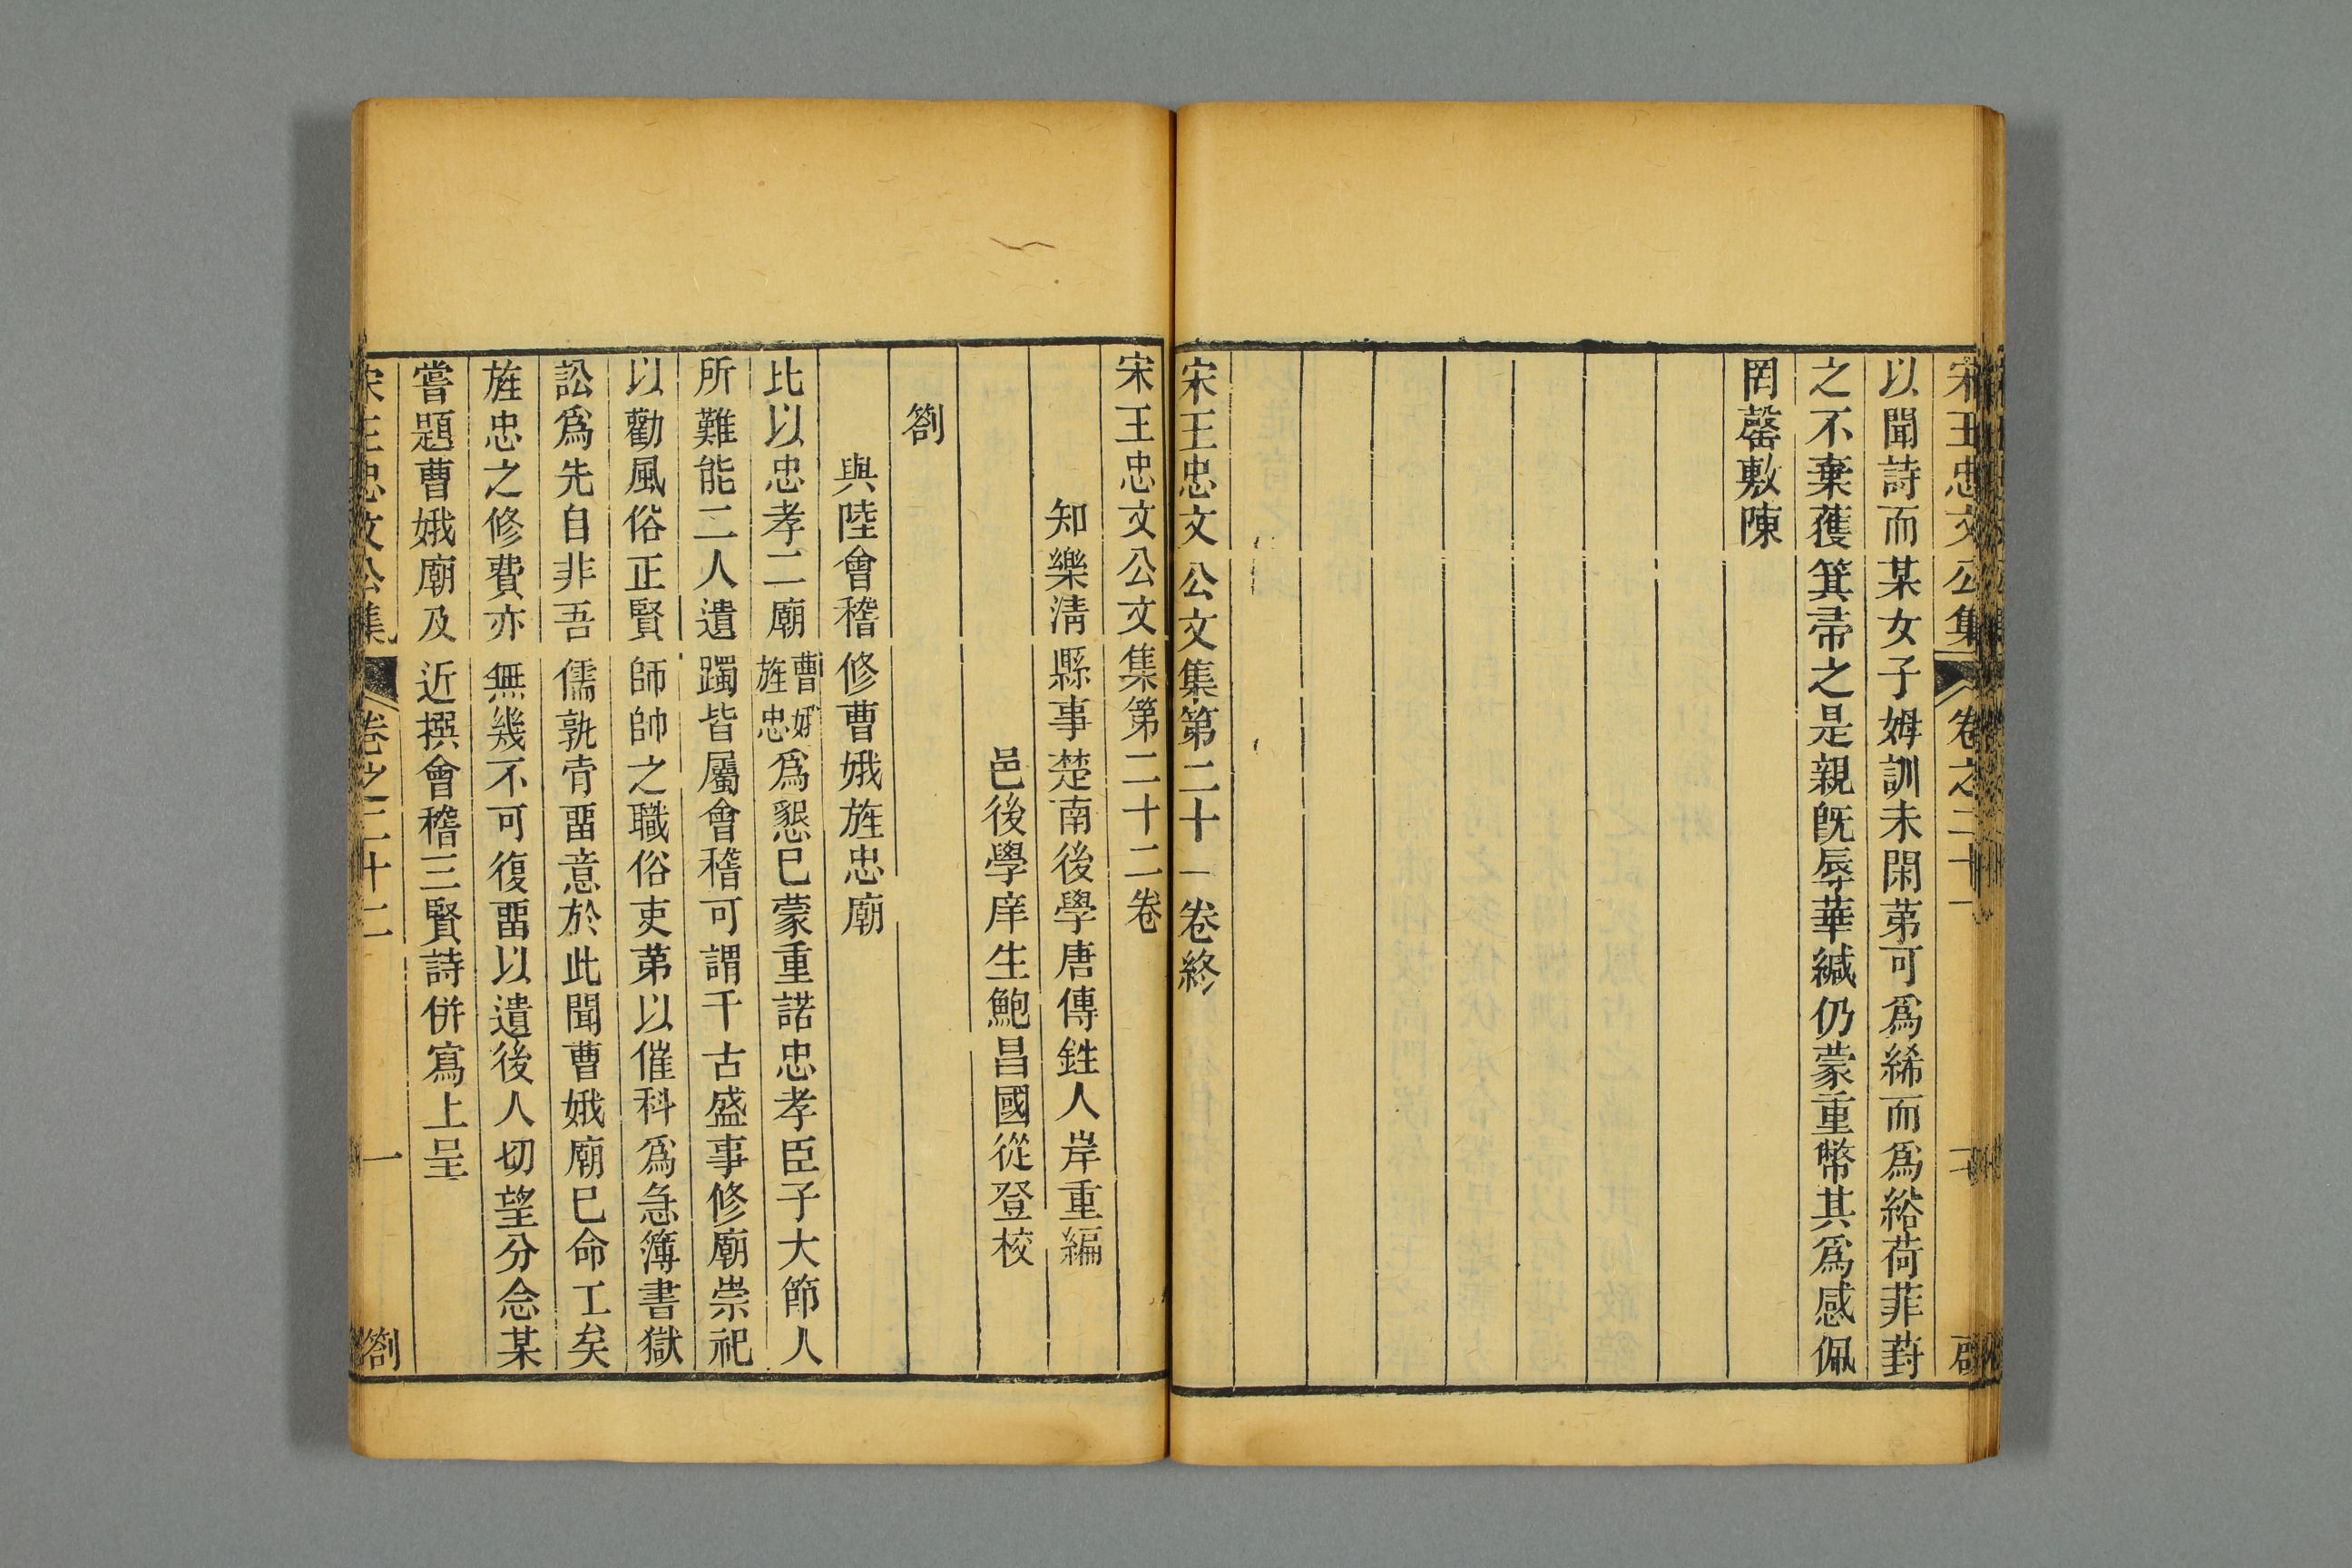 宋王忠文公集 卷之二十一 啓
以聞詩而某女子姆訓未閑苐可爲絺而爲綌荷菲葑
之不棄蒦箕帚之是親旣辱華緘仍蒙重幣其爲感佩
罔罄敷陳
宋王忠文公文集第二十一卷終
宋王忠文公文集第二十二卷
知樂淸縣事楚南後學唐傳鉎人岸重編
邑後學庠生鮑昌國從登校
劄
與陸會稽修曹娥旌忠廟
比以忠孝二廟曹娥旌忠爲懇巳蒙重諾忠孝臣子大節人
所難能二人遺躅皆屬會稽可謂千古盛事修廟崇祀
以勸風俗正賢師帥之職俗吏苐以催科爲急簿書獄
訟爲先自非吾儒孰肯畱意於此聞曹娥廟巳命工矣
旌忠之修費亦無幾不可復畱以遺後人切望分念某
嘗題曹娥廟及近撰會稽三賢詩併寫上呈
宋王忠文公集 卷之二十二 一 劄